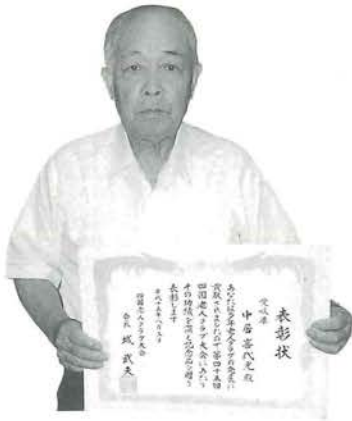 表彰状
愛媛県
中居喜代光殿
あなたは多年老人クラブの発展に
貢献されましたので第四十五回
四国老人クラブ大会にあたり
その功績を讃え記念品を贈り
表彰します
平成十五年八月五日
四国老人クラブ大会
会長 城武夫